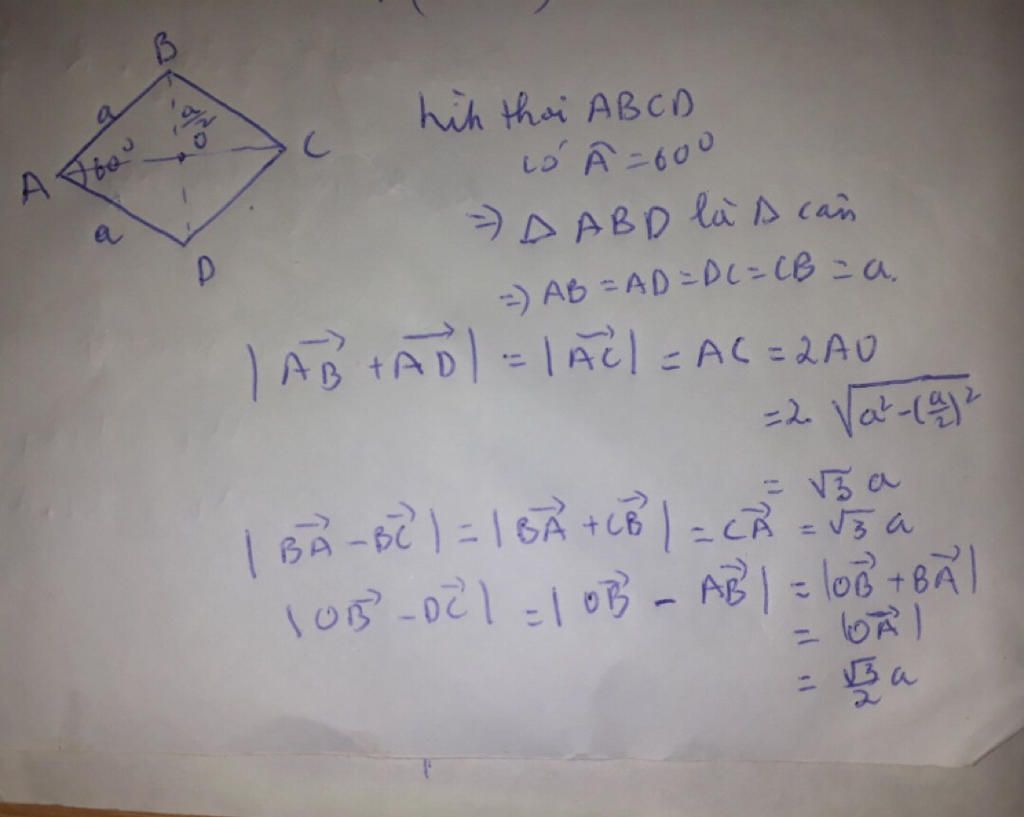 B
a
a/2
O
C
A
60°
a
D
hìh thoi ABCD
có Â = 60°
=> Δ ABD là Δ cân
=> AB = AD = DC = CB = a.
|AB→ + AD→| = |AC→| = AC = 2AO
= 2. √(a² - (a/2)²)
= √3 a
|BA→ - BC→| = |BA→ + CB→| = CA→ = √3 a
|OB→ - DC→| = |OB→ - AB→| = |OB→ + BA→|
= |OA→|
= √3/2 a